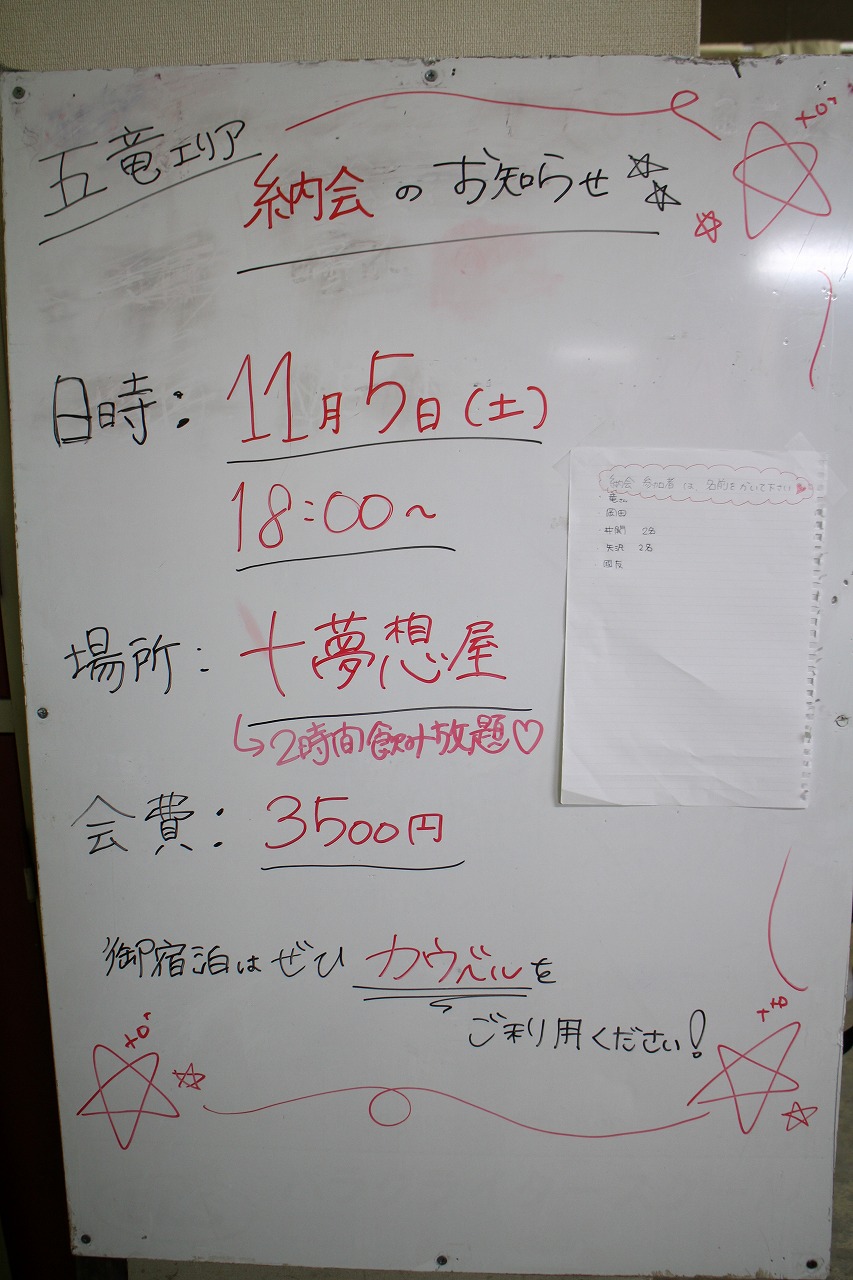 五竜エリア
納会のお知らせ
日時：11月5日(土)
18:00～
場所：十夢想屋
↳2時間飲み放題♡
会費：3500円
御宿泊はぜひカウベルを
ご利用ください!
納会 参加者 は 名前をかいて下さい
竜さん
岡田
井関 2名
矢沢 2名
國友